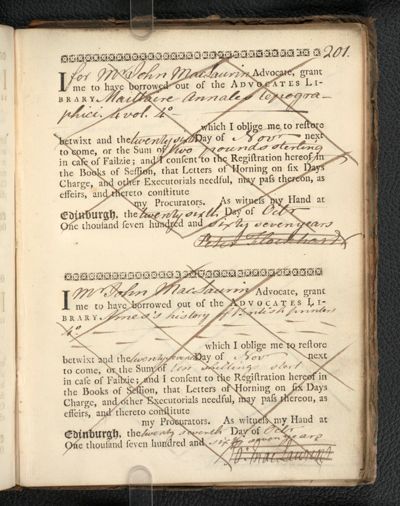 201.
I for Mr John MacLaurin Advocate, grant
me to have borrowed out of the ADVOCATES LI-
BRARY Maittaire Annales typogra-
phici 4 vol. 4o
which I oblige me to restore
betwixt and the twenty sixth Day of Novr next
to come, or the Sum of two pounds sterling
in case of Failzie; and I consent to the Registration hereof in
the Books of Session, that Letters of Horning on six Days
Charge, and other Executorials needful, may pass thereon, as
effeirs, and thereto constitute
my Procurators. As witness my Hand at
Edinburgh, the twenty sixth Day of Octr
One thousand seven hundred and sixty seven years
I Mr John MacLaurin Advocate, grant
me to have borrowed out of the ADVOCATES LI-
BRARY Ames's history of British printers
4o
which I oblige me to restore
betwixt and the twenty seventh Day of Nov next
to come, or the Sum of ten shillings sterl
in case of Failzie; and I consent to the Registration hereof in
the Books of Session, that Letters of Horning on six Days
Charge, and other Executorials needful, may pass thereon, as
effeirs, and thereto constitute
my Procurators. As witness my Hand at
Edinburgh, the twenty seventh Day of Octr
One thousand seven hundred and sixty seven years
Jo. MacLaurin